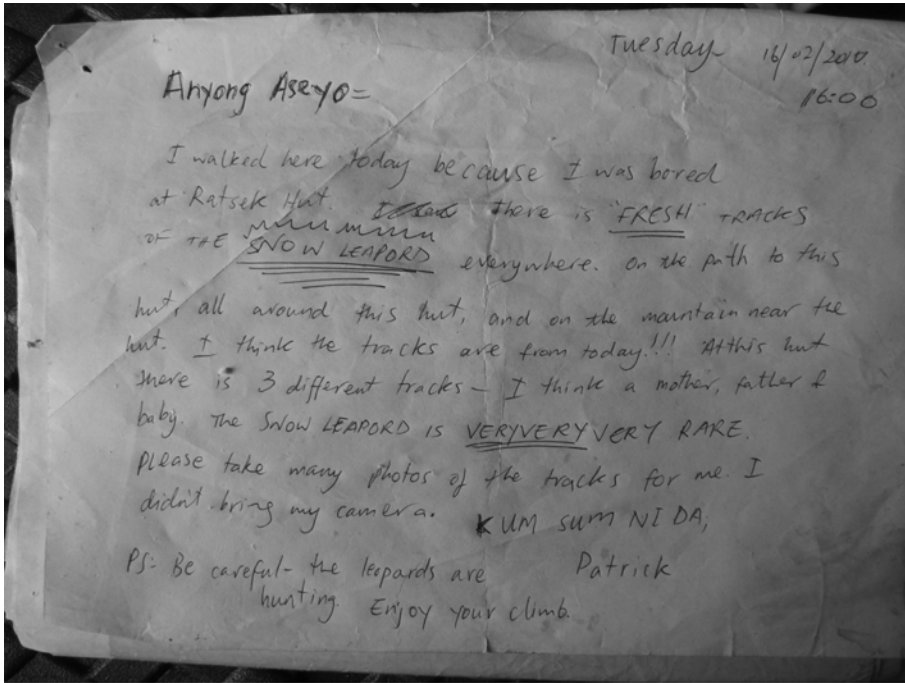 Tuesday 16/02/2010
16:00
Anyong Aseyo=
I walked here today because I was bored
at Ratsek Hut. There is "FRESH" TRACKS
OF THE SNOW LEAPORD everywhere. On the path to this
hut, all around this hut, and on the mountain near the
hut. I think the tracks are from today!!! At this hut
there is 3 different tracks - I think a mother, father &
baby. The SNOW LEAPORD IS VERY VERY VERY RARE.
Please take many photos of the tracks for me. I
didn't bring my camera. KUM SUM NI DA,
Patrick
PS:- Be careful- the leopards are
hunting. Enjoy your climb.